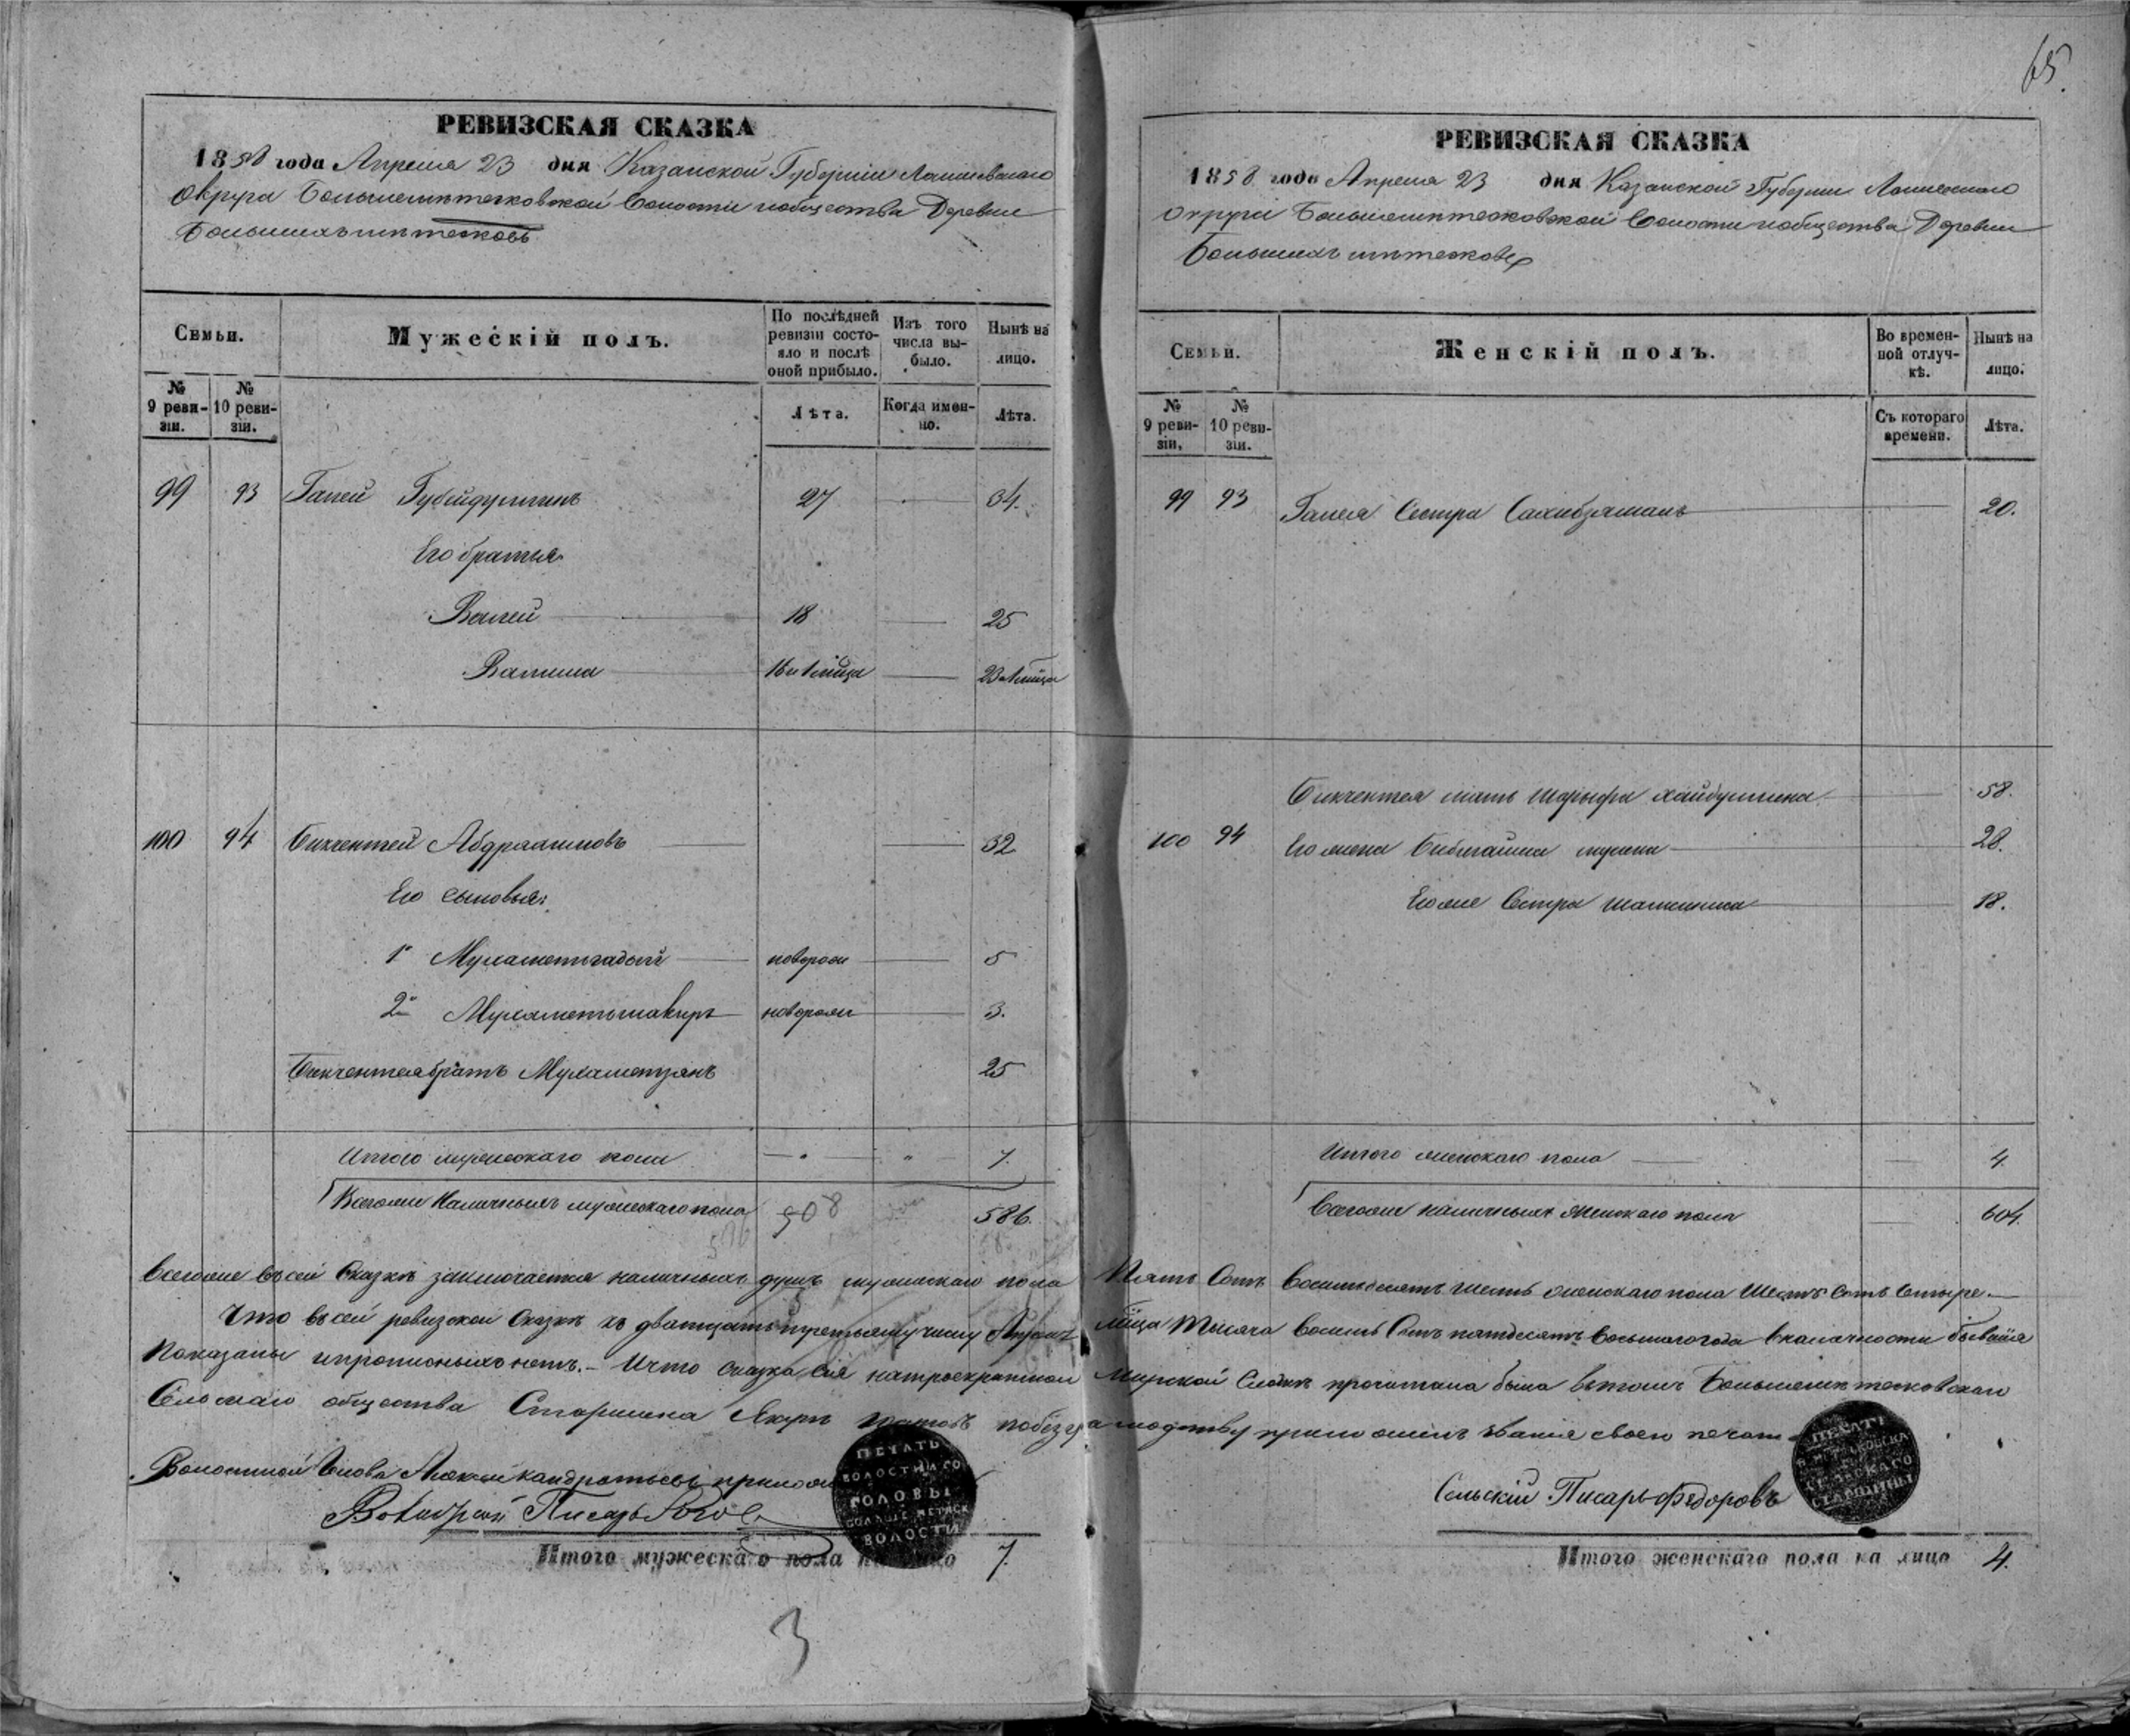 65.
РЕВИЗСКАЯ СКАЗКА
1858 года Апреля 23 дня Казанской Губернии Лаишевскаго
округа Большеметесковской Волости и общества Деревни
Большихъ метесковъ
Семьи.
Мужескій полъ.
По послѣдней ревизіи состояло и послѣ оной прибыло.
Изъ того числа выбыло.
Нынѣ на лицо.
№ 9 ревизіи.
№ 10 ревизіи.
Лѣта.
Когда именно.
Лѣта.
99 93 Ганей Губейдуллинъ 27 34.
Его братья
Валей 18 25
Валиша 16 и 1 м̃ца 23 и 1 м̃ца
100 94 Бикчентей Абдрахимовъ 32
Его сыновья:
1й Мухаметьгадый новорож 5
2й Мухаметьшакиръ новорож 3.
Бикчентея братъ Мухаметзянъ 25
Итого мужескаго пола 7.
Всего же наличныхъ мужескаго пола 508 586.
576
РЕВИЗСКАЯ СКАЗКА
1858 года Апреля 23 дня Казанской Губернии Лаишевскаго
округи Большеметесковской Волости и общества Деревни
Большихъ метесковъ
Семьи.
Женскій полъ.
Во временной отлучкѣ.
Нынѣ на лицо.
№ 9 ревизіи,
№ 10 ревизіи.
Съ котораго времени.
Лѣта.
99 93 Ганея Сестра Сахибзямалъ 20.
Бикчентея мать Шарыфа хайбуллина 58.
100 94 Его жена Бибигайша 28.
Его же Сестра 18.
Итого женскаго пола 4.
Всего же наличныхъ женскаго пола 604.
Всего же въ сей Сказкѣ заключается наличныхъ душъ мужескаго пола Пять Сотъ Восемьдесятъ шесть женскаго пола Шесть сотъ Четыре.
Что въ сей ревизской Сказкѣ къ двадцать третьему числу Апреля м̃ца Тысяча Восемь Сотъ пятдесятъ Восьмаго года в наличности бывшія
Показаны и прописныхъ нетъ.- И что сказка сія на троекратной Мирской Сходке прочитана была въ томъ Большеметесковскаго
Сельскаго общества Старшина Якупъ по безграмотству приложилъ званія своего печать
Волостной Голова Алексей кандратьевъ прилож
Писарь
ПЕЧАТЬ
ВОЛОСТНАГО
ГОЛОВЫ
ВОЛОСТИ
Сельскій Писарь Федоровъ
ПЕЧАТЬ
СЕЛЬСКАГО
СТАРШИНЫ
Итого мужескаго пола на лицо 7.
Итого женскаго пола на лицо 4.
3